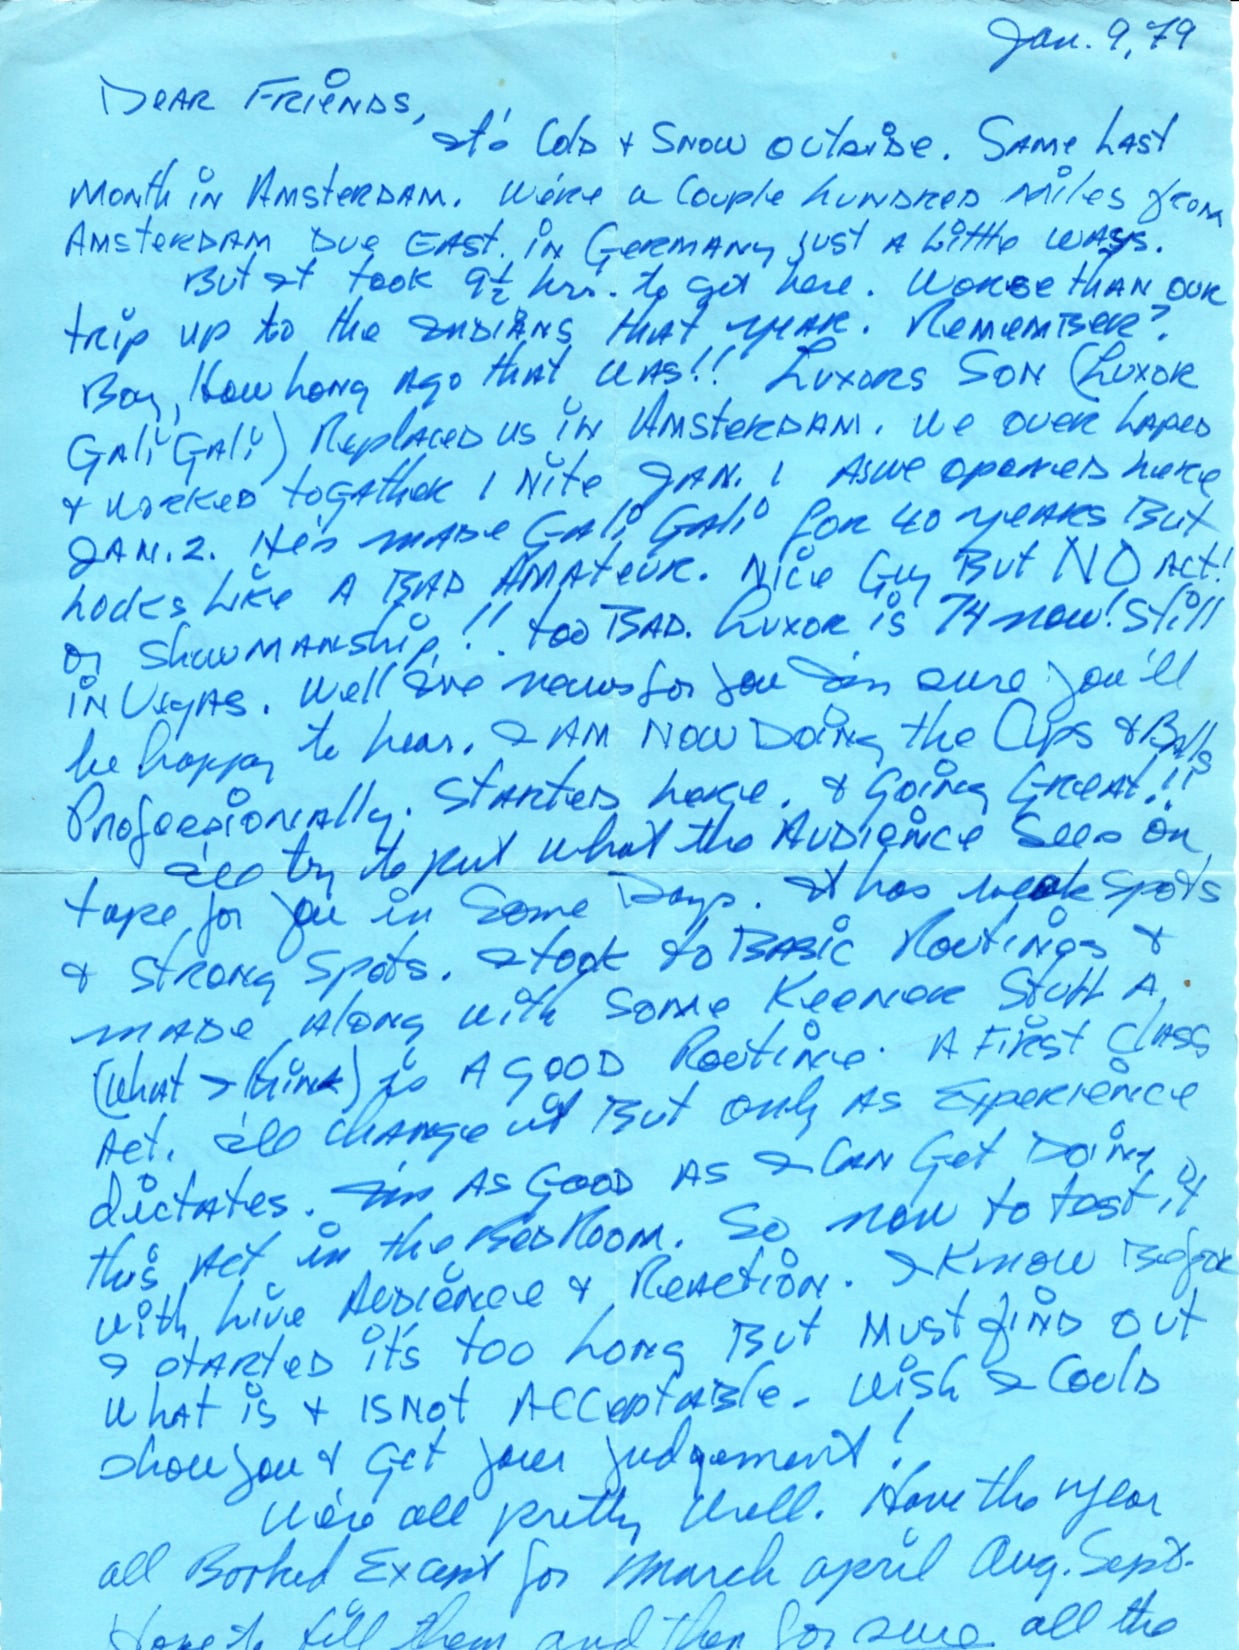 Jan. 9, 79
Dear Friends,
It's Cold & Snow outside. Same Last
Month in Amsterdam. We're a couple hundred miles from
Amsterdam Due East. in Germany just a Little ways.
But it took 9½ hrs. to get here. Worse than our
trip up to the Indians that year. Remember?
Boy, How Long ago that was!! Luxors Son (Luxor
Gali Gali) Replaced us in Amsterdam. We over Laped
& worked togather 1 Nite Jan. 1 As we opened here
Jan. 2. He's made Gali Gali for 40 years But
Looks Like A Bad Amateur. Nice Guy But NO Act!
or Showmanship!! too Bad. Luxor is 74 now! Still
in Vegas. Well I've news for you I'm sure you'll
be happy to hear. I AM Now Doing the Cups & Balls
Professionally. Started here. & Going Great!!
I'll try to put what the Audience Sees on
tape for you in Some Days. It has weak spots
& strong spots. I took to Basic Routines &
made along with some Keener Stuff A
(what I think) is A good Routine. A First Class
Act. I'll change it But only As Experience
dictates. I'm As Good As I Can Get Doing
this Act in the BedRoom. So now to test it
with Live Audience & Reaction. I Know Before
I started it's too Long But Must find out
what is & is Not Acceptable. Wish I Could
show you & Get your judgement!
We're all pretty Well. Have the year
all Booked Except for March april Aug. Sept.
Have to fill them and then for sure all the